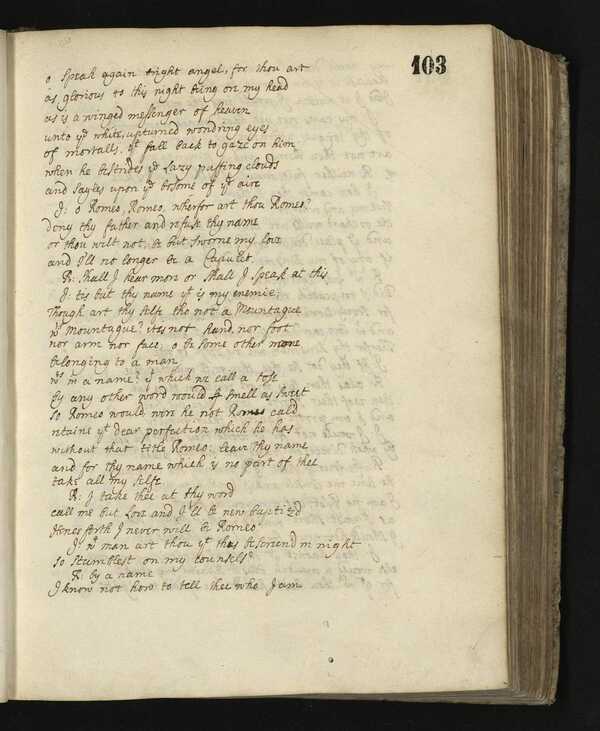 103
o speak again bright angel, for thou art
as glorious to this night being on my head
as is a winged messenger of heaven
unto ye white, upturned wondring eyes
of mortalls. yt fall back to gaze on him
when he bestrides ye Lazy passing clouds
and sayles upon ye bosome of ye aire
J: o Romeo, Romeo, wherfor art thou Romeo?
deny thy father and refuse thy name
or thou wilt not, be but sworne my love
and I'll no longer be a Capulet.
R: shall J hear more or shall J speak at this
J: tis but thy name yt is my enemie,
Though art thy self tho not a Mountague
wt Mountague? it is not hand nor foot
nor arm nor face, o be some other name
belonging to a man
wts in a name? yt which we call a rose
by any other word would smell as sweet
so Romeo would were he not Romeo cald
retaine yt dear perfection which he has
without that title Romeo: leave thy name
and for thy name which is no part of thee
take all my selfe
R: J take thee at thy word
call me but Love and J'll be new baptizd
Henceforth J never will be Romeo
J: wt man art thou yt thus bescreend in night
so stumblest on my counsels?
R: by a name
J know not how to tell thee who J am